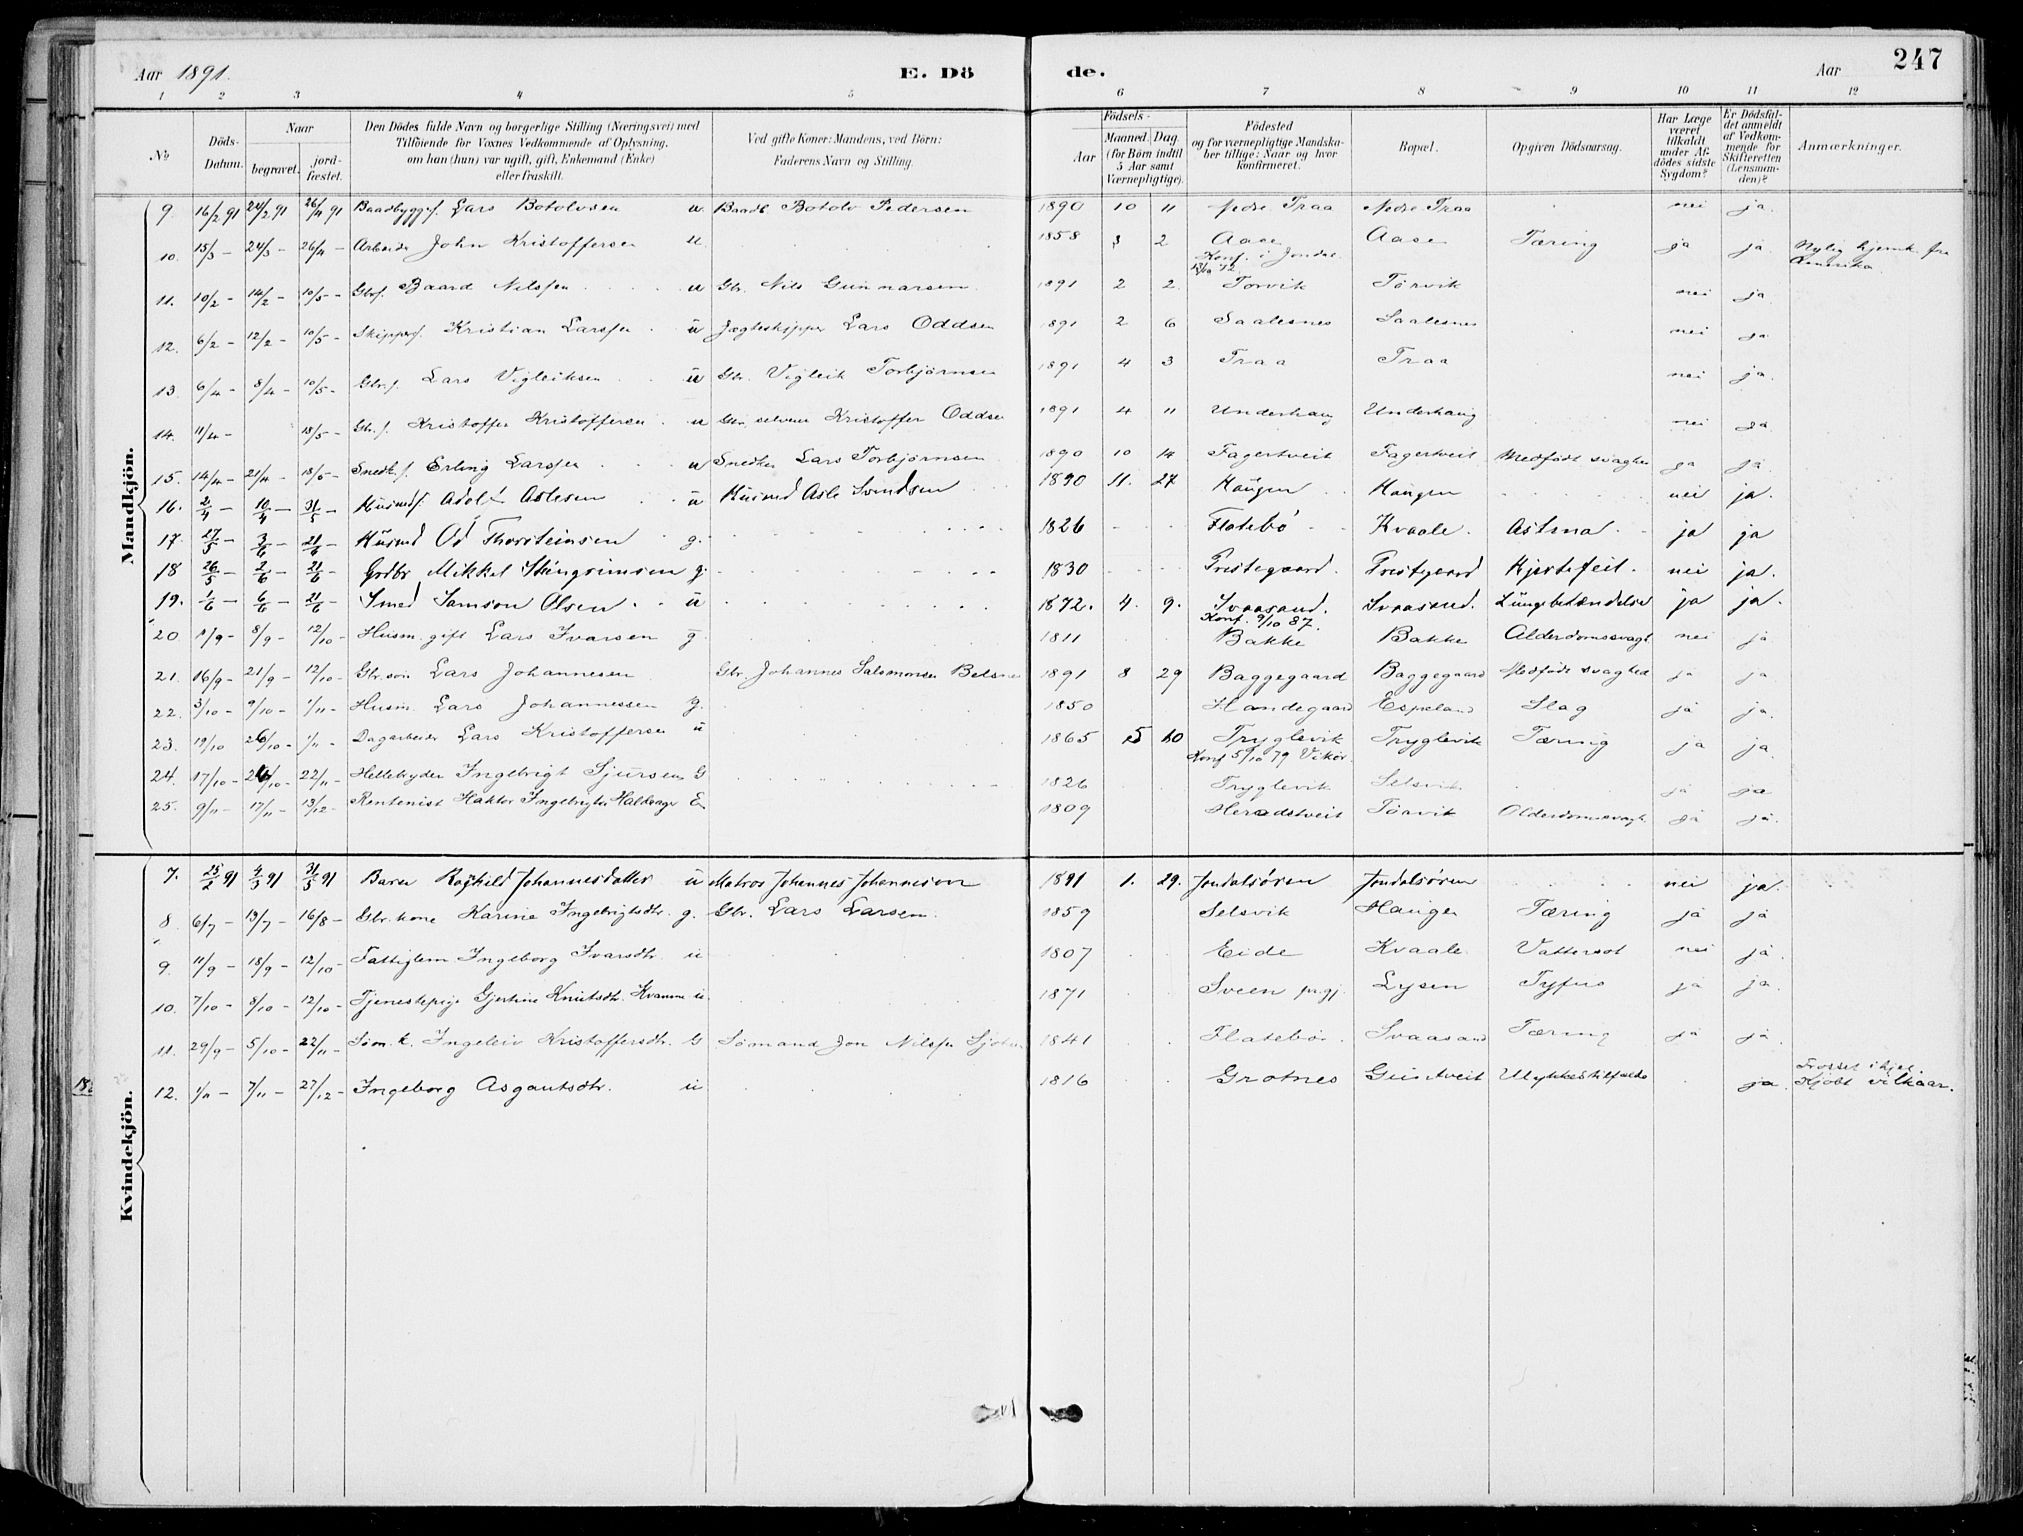 Aar 1891. E. Dö
de. Aar 247
1 2 3 4 5 6 7 8 9 10 11 12
No Döds-Datum. Naar begravet. jord-fæstet. Den Dödes fulde Navn og borgerlige Stilling (Næringsvei) med Tilföiende for Voxnes Vedkommende af Oplysning, om han (hun) var ugift, gift, Enkemand (Enke) eller fraskilt. Ved gifte Koner: Mandens, ved Börn: Faderens Navn og Stilling. Födsels- Aar Maaned. Dag. (for Börn indtil 5 Aar samt Værnepligtige). Födested og for værnepligtige Mandskaber tillige: Naar og hvor konfirmeret. Bopæl. Opgiven Dödsaarsag. Har Læge været tilkaldt under Afdödes sidste Sygdom? Er Dödsfaldet anmeldt af Vedkommende for Skifteretten (Lensmanden)? Anmærkninger.
Mandkjön.
9. 16/2 91 24/2 91 26/4 91 Baadbyggs. Lars Botolvsen u Baadb. Botolv Pedersen 1890 10 11 Nedre Traa Nedre Traa nei ja.
10. 15/3 - 24/3 - 26/4 - Arbeider John Kristoffersen u. 1858 3 2 Aase Aase Tæring ja ja. Nylig hjemk. fra Amerika.
Konf. i Jondal 13/10 72.
11. 10/2 - 14/2 - 10/5 - Gbrs. Baard Nilssen u Gbr. Nils Gunnarsen 1891 2 2 Torvik Torvik nei ja.
12. 6/2 - 12/2 - 10/5 - Skippers. Kristian Larssen u Jægteskipper Lars Oddsen 1891 2 6 Saalesnes Saalesnes nei ja.
13. 6/4 - 8/4 - 10/5 - Gbr.s. Lars Vigleiksen u Gbr. Vigleik Torbjørnsen 1891 4 3 Traa Traa nei ja.
14. 11/4 - 18/5 - Gbr.s. Kristoffer Kristoffersen u Gbr. selveier Kristoffer Oddsen 1891 4 11 Underhaug Underhaug nei ja.
15. 14/4 - 21/4 - 18/5 - Snedk.s. Erling Larssen u Snedker Lars Torbjørnsen 1890 10 14 Fagertveit Fagertveit Medfödt svaghed ja ja.
16. 2/4 - 10/4 - 31/5 - Husmds. Adolf Aslesen u Husmd Asle Svindsen 1890 11. 27 Haugen Haugen nei ja.
17. 27/5 - 3/6 - 21/6 - Husmd Od Thorsteinsen g. 1826 Flatebö Kvaale. Astma ja ja
18 26/5 - 2/6 - 21/6 - Grdbr Mikkel Steingrimsen g. 1830 Prestegaard. Prestegaard Hjertefeil. nei ja.
19. 1/6 - 6/6 - 21/6 - Smed Samson Olsen. u 1872. 4. 9. Svaasand. Svaasand. Lungebetændelse ja ja.
Konf. 9/10 87.
20 1/9 - 8/9 - 12/10 - Husm. gift Lars Ivarsen g 1811 Bakke Bakke Alderdomssvagh. nei ja
21. 16/9 - 21/9 - 12/10 - Gbr. søn Lars Johannesen Gbr. Johannes Salomonsen Belsnes 1891 8 29 Baggegaard Baggegaard Medfödt svaghed ja ja
22. 3/10 - 9/10 - 1/11 - Husm. Lars Johannessen g. 1850 Handegaard Espeland Slag ja ja.
23. 19/10 26/10 - 1/11 - Dagarbeider Lars Kristoffersen u 1865 5 10 Tryglevik Tryglevik Tæring ja ja
Konf 5/10 79 Vikör.
24. 17/10 - 26/10 - 22/11 - Hellebryder Ingebrigt Sjursen G 1826 Tryglevik Selsvik ja ja
25. 9/11 - 17/11 - 13/12 - Rentenist Haktor Ingebrigts. E. 1809 Heradstveit Törvik Alderdomssvagh. ja ja.
Kvindekjön.
7. 25/2 91 4/3 91 31/5 91 Barn Raghild Johannesdatter u Matros Johannes Johannesson 1891 1. 29. Jondalsören Jondalsören nei ja.
8 6/7 - 13/7 - 16/8 - Gbr. kone Karine Ingebrigtsdtr. g. Gbr. Lars Larsen. 1859 Selsvik Haugen Tæring ja ja
9. 11/9 - 18/9 - 12/10 - Fattiglem Ingeborg Ivarsdtr. u 1807 Eide Kvaale Vattersot nei ja.
10. 7/10 - 8/10 - 12/10 - Tjenestepige Gjertine Knutsdtr. Kvamme u. 1871 Sveen pr.gj. Lysen Tyfus ja ja.
11. 29/9 - 5/10 - 22/11 - Søm.k. Ingeleiv Kristoffersdtr. G Sømand Jon Nilssen 1841 Flatebö. Svaasand Tæring ja ja.
12. 1/11 - 7/11 - 27/12 - Ingeborg Asgautsdtr. u 1816 Grotnes Guntveit Ulykkestilfælde ja. Kjöbt vilkaar.
18